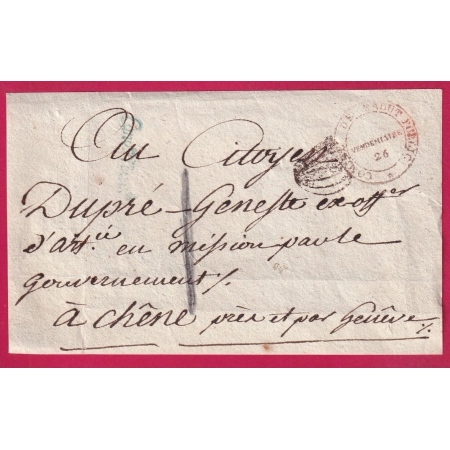 Au Citoyen
Dupré-Geneste ex offer
d'artie en mission par le
gouvernement /.
à Chêne près et par Genève /.
VENDEMIAIRE
26